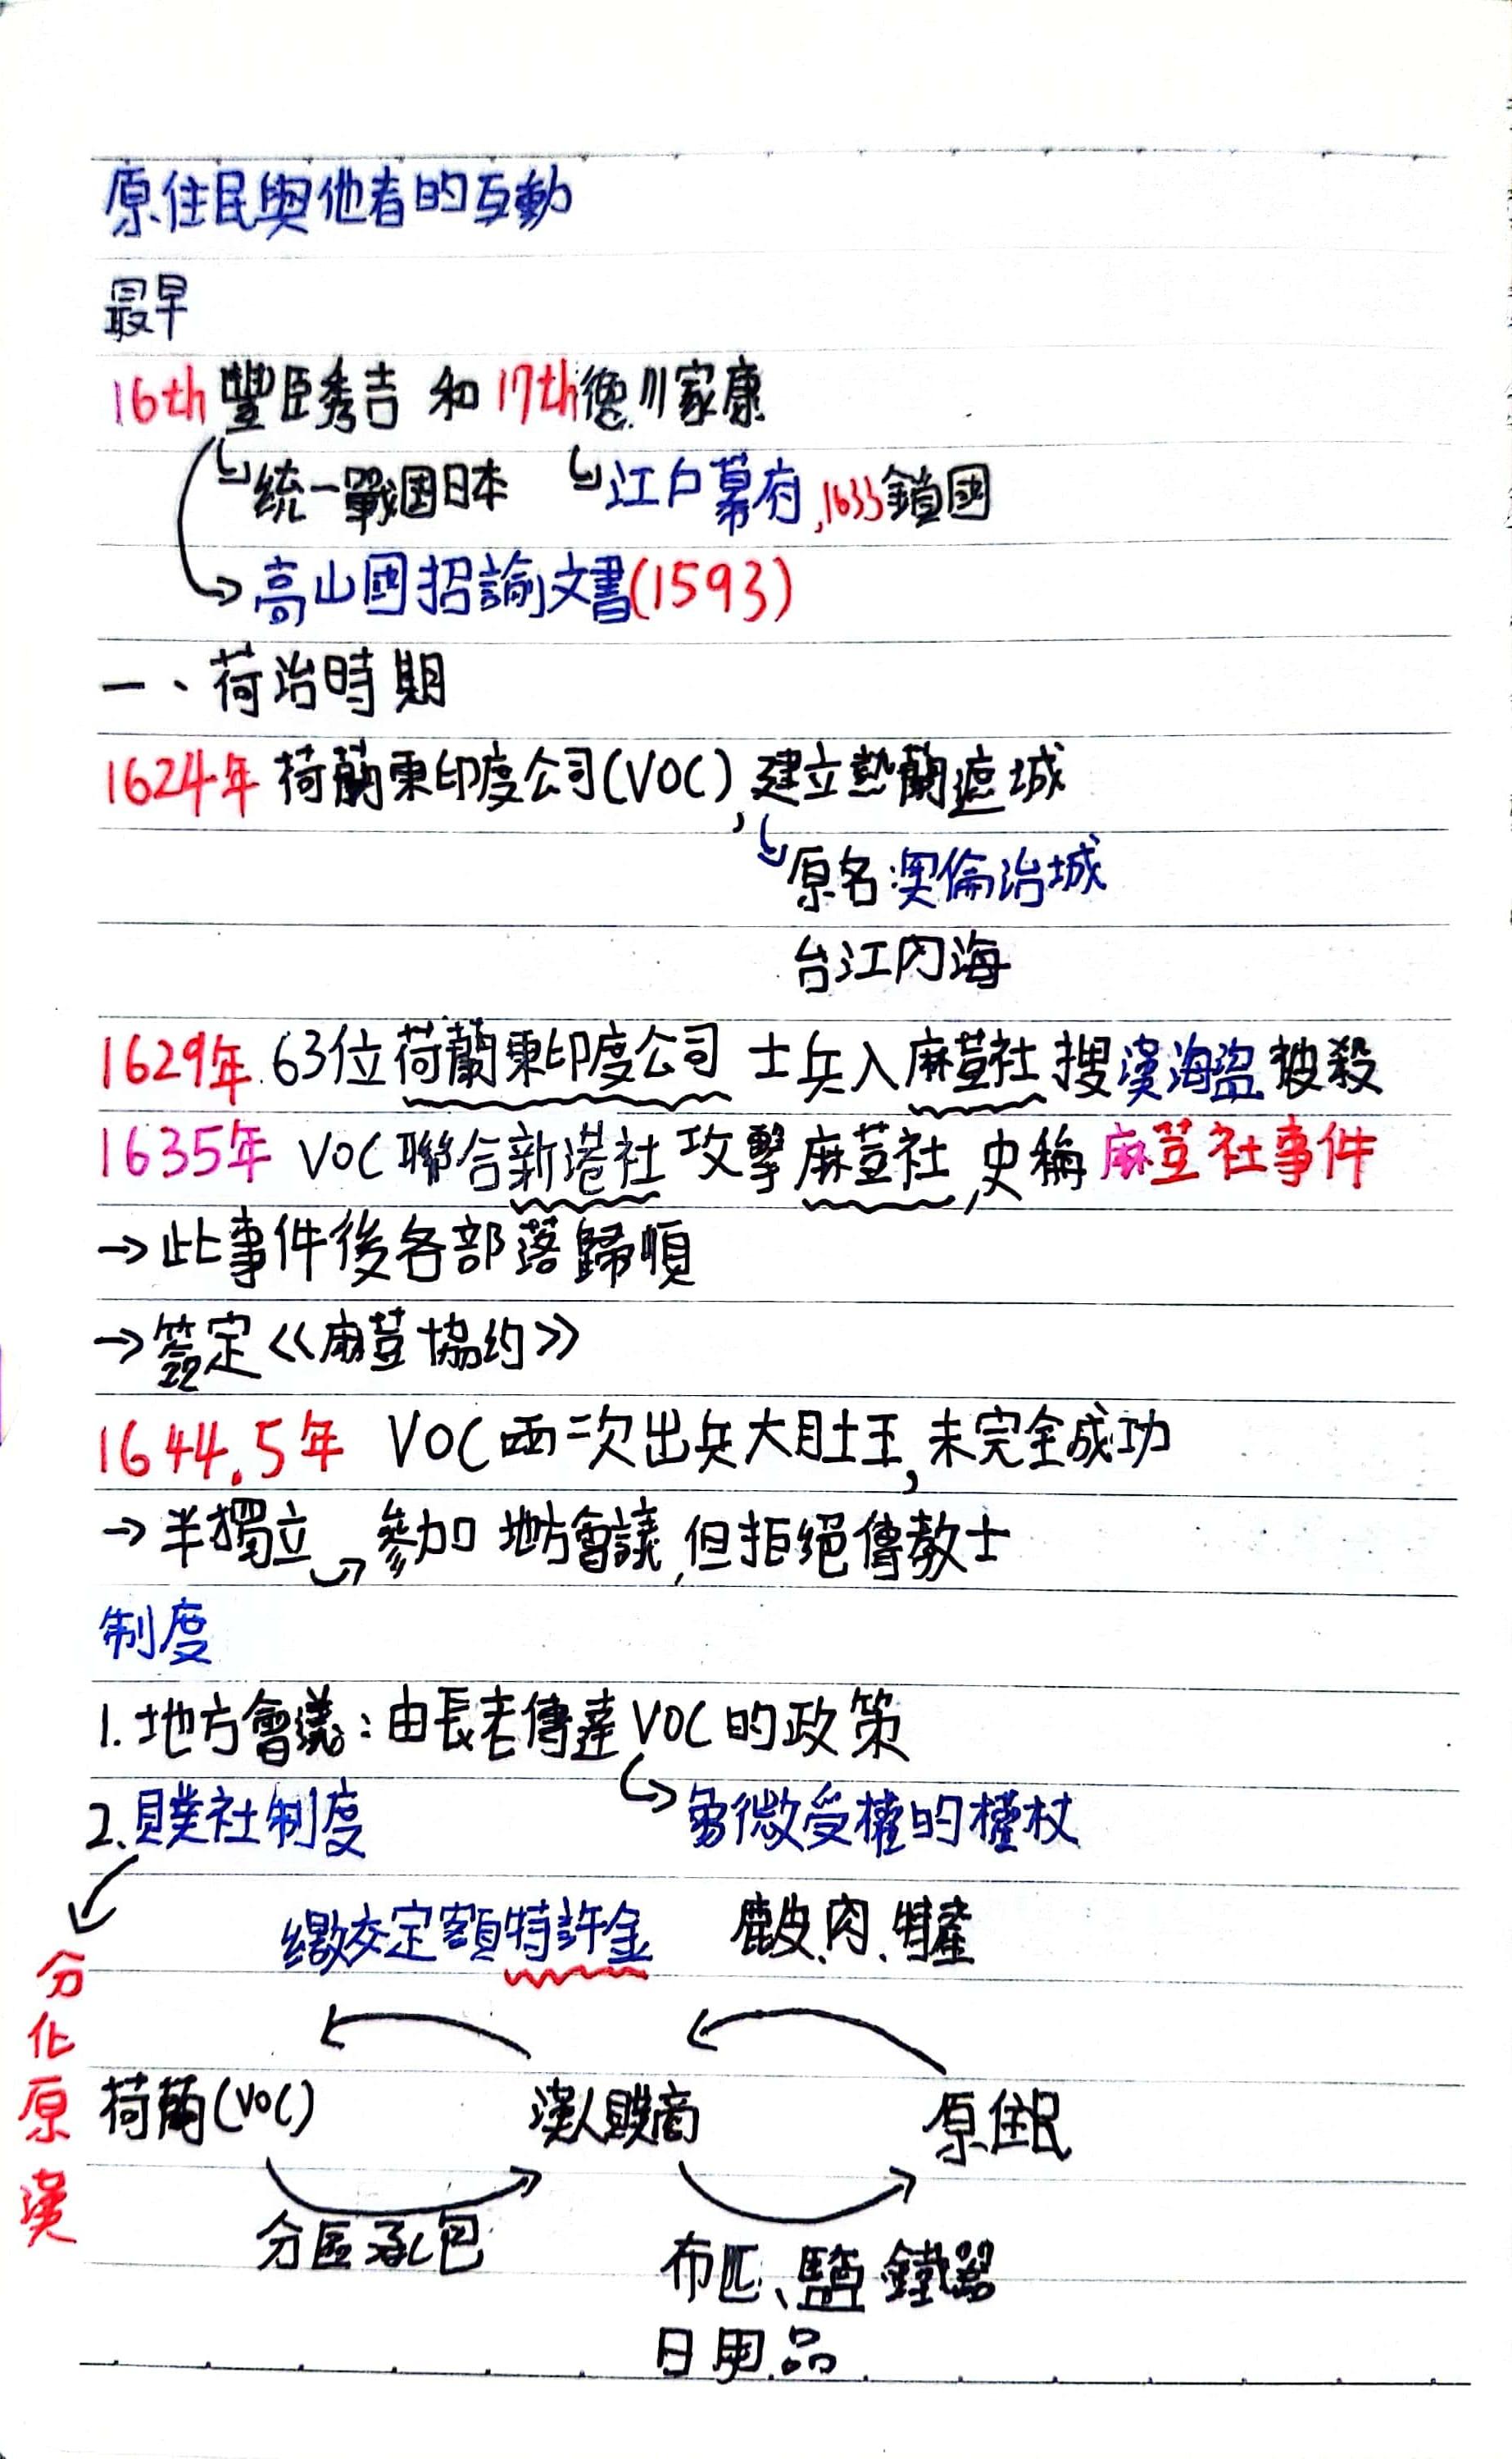 原住民與他者的互動
最早
16th 豐臣秀吉 和 17th 德川家康
統一戰国日本 江戶幕府,1633鎖國
高山國招諭文書(1593)
一、荷治時期
1624年 荷蘭東印度公司(VOC),建立熱蘭遮城
原名:奧倫治城
台江內海
1629年.63位荷蘭東印度公司 士兵入麻荳社搜漢海盜被殺
1635年 VOC聯合新港社攻擊麻荳社,史稱麻荳社事件
→此事件後各部落歸順
→簽定《麻荳協約》
1644.5年 VOC兩次出兵大肚王,未完全成功
→半獨立 參加地方會議,但拒絕傳教士
制度
1.地方會議:由長老傳達VOC的政策
2.贌社制度 象徵受權的權杖
繳交定額特許金 鹿皮、肉、特產
分化原漢
荷蘭(VOC) 漢人贌商 原住民
分區承包
布匹、鹽 鐵器
日用品